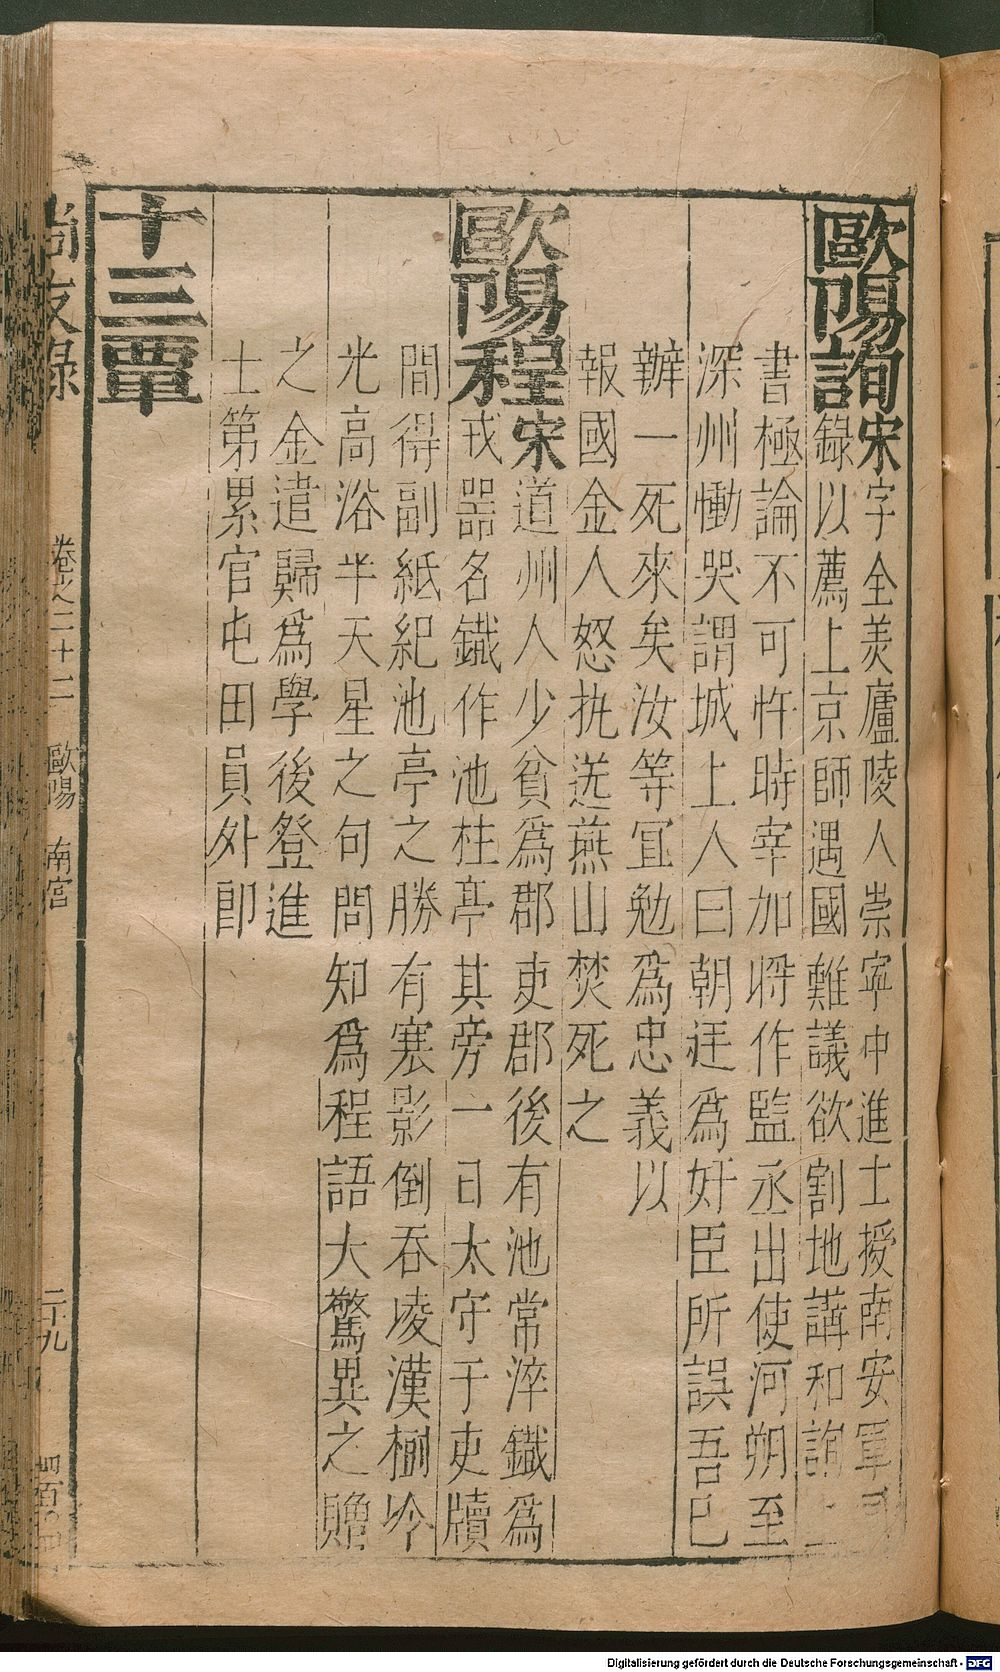 歐陽詢宋字全美廬陵人崇寧中進士授南安軍司
錄以薦上京師遇國難議欲割地講和詢上
書極論不可忤時宰加將作監丞出使河朔至
深州慟哭謂城上人曰朝廷爲奸臣所誤吾已
辦一死來矣汝等宜勉爲忠義以
報國金人怒執送燕山焚死之
歐陽程宋道州人少貧爲郡吏郡後有池常淬鐵爲
戎器名鐵作池柱亭其旁一日太守于吏牘
間得副紙紀池亭之勝有寒影倒吞凌漢樹吟
光高浴半天星之句問知爲程語大驚異之贈
之金遣歸爲學後登進
士第累官屯田員外郎
十三覃
尚友錄 卷之二十二 歐陽 南宮 二十九
Digitalisierung gefördert durch die Deutsche Forschungsgemeinschaft - DFG